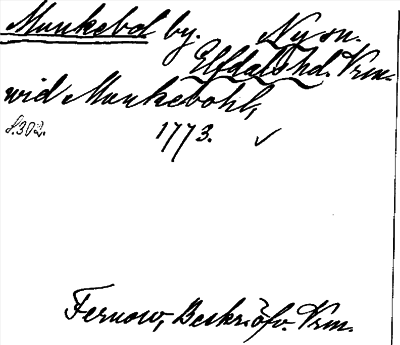 Munkebol by. Nysn.
Elfdals hd. Vrm.
wid Munkebohl,
s. 302. 1773. ✓
Fernow, Beskr. öfv. Vrm.